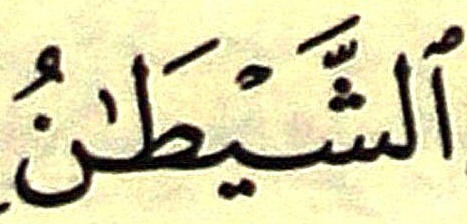 ٱلشَّيْطَـٰنُ